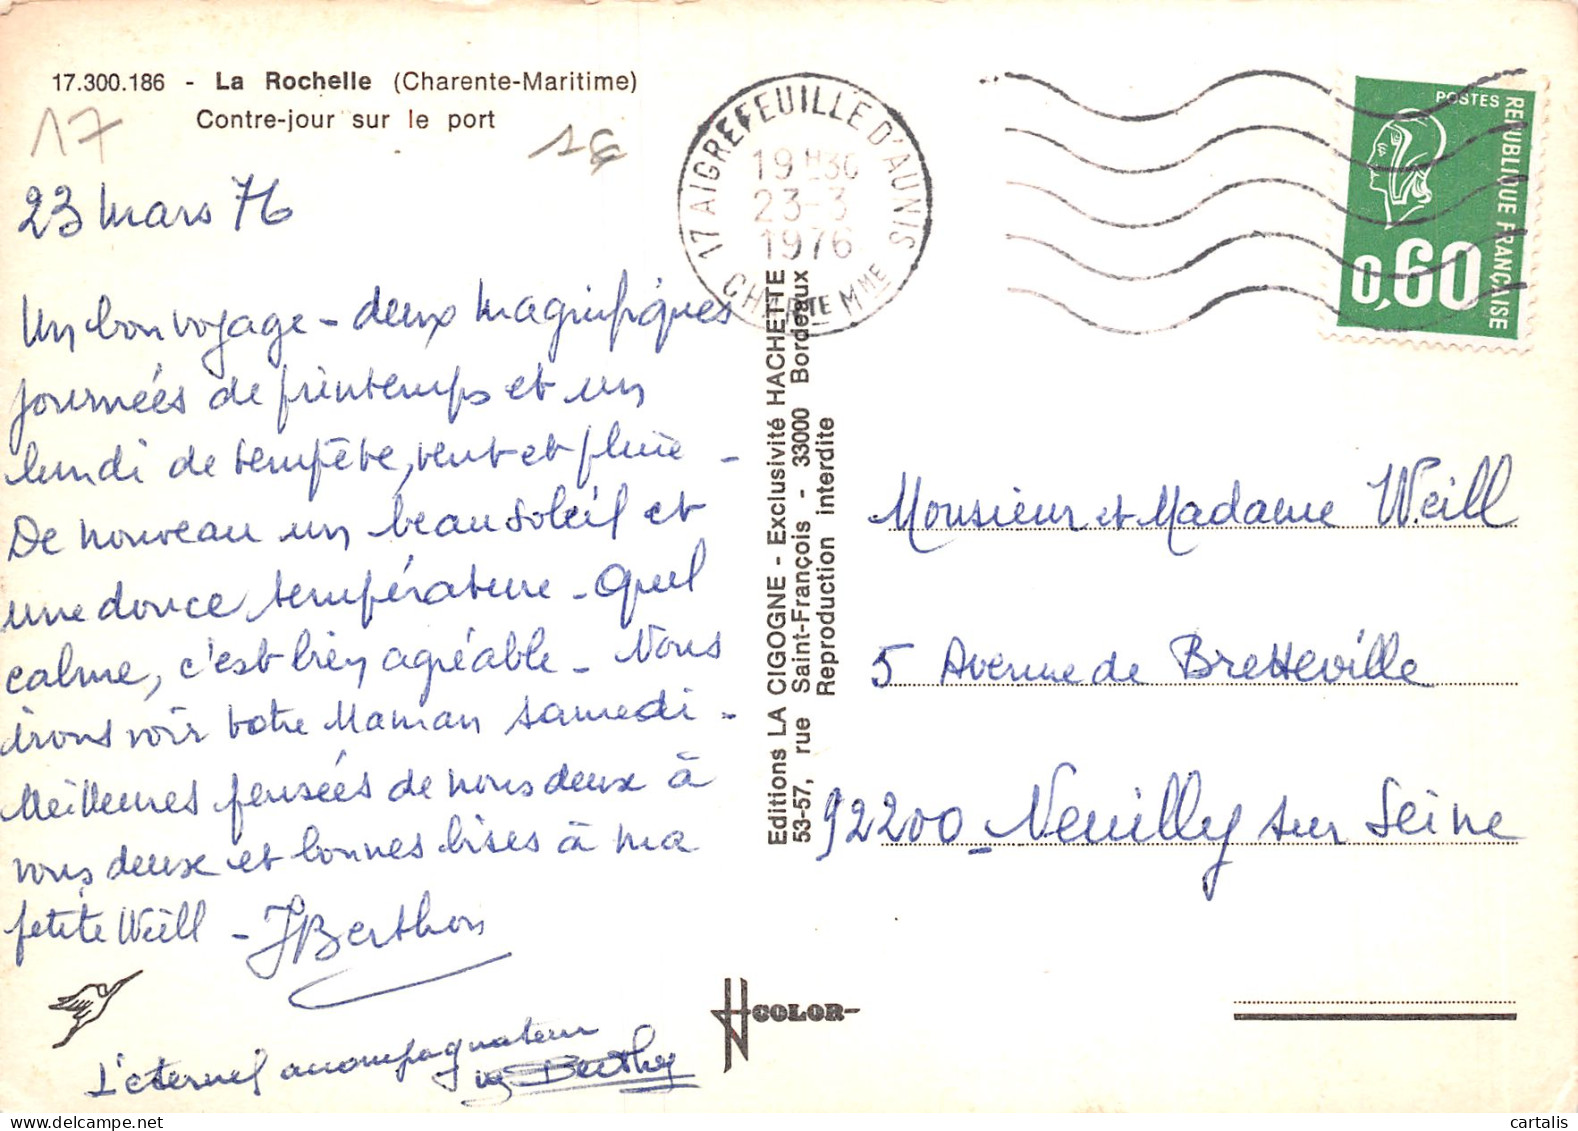 17.300.186 - La Rochelle (Charente-Maritime)
Contre-jour sur le port
17
23 mars 76
Un bon voyage - deux magnifiques
journées de printemps et un
lundi de tempête, vent et pluie -
De nouveau un beau soleil et
une douce température - Quel
calme, c'est bien agréable - Nous
irons voir votre Maman samedi -
Meilleures pensées de nous deux à
vous deux et bonnes bises à ma
petite Weill - JBerthon
L'éternel accompagnateur
Berthon
17 AIGREFEUILLE D'AUNIS
19H30
23-3
1976
CHARTE MME
POSTES
REPUBLIQUE FRANÇAISE
0,60
Editions LA CIGOGNE - Exclusivité HACHETTE
53-57, rue Saint-François - 33000 Bordeaux
Reproduction interdite
Monsieur et Madame Weill
5 Avenue de Bretteville
92200 - Neuilly sur Seine
COLOR
cartalis